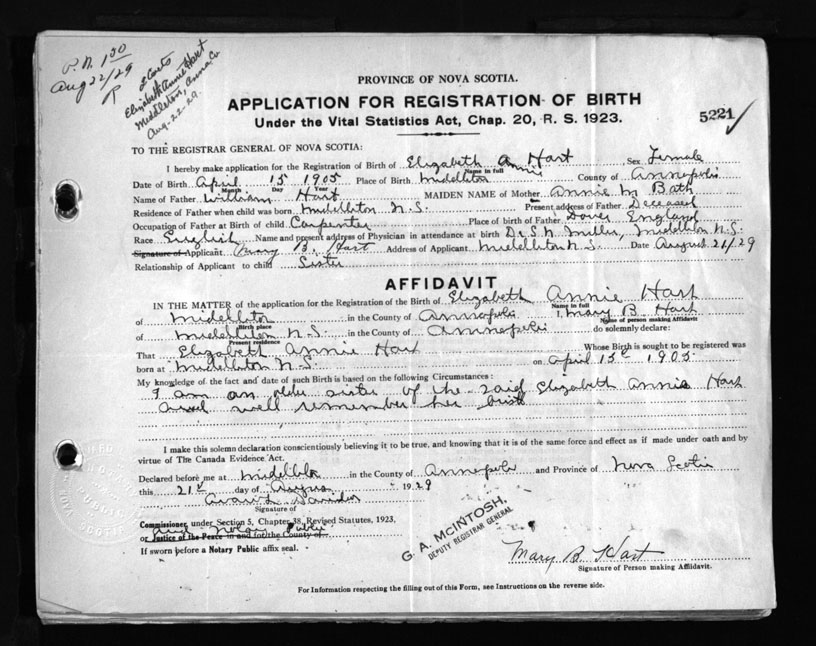 P.N. 100
Aug 22/29
R
2 Certs
Elizabeth Annie Hart
Middleton, Anna Co
Aug-22-29.
PROVINCE OF NOVA SCOTIA.
APPLICATION FOR REGISTRATION OF BIRTH
Under the Vital Statistics Act, Chap. 20, R. S. 1923.
5221
TO THE REGISTRAR GENERAL OF NOVA SCOTIA:
I hereby make application for the Registration of Birth of Elizabeth Annie Hart Sex Female
Name in full
Date of Birth April 15 1905 Place of Birth Middleton County of Annapolis
Month Day Year
Name of Father William Hart MAIDEN NAME of Mother Annie M Bath
Residence of Father when child was born Middleton N.S. Present address of Father Deceased
Occupation of Father at Birth of child Carpenter Place of birth of Father Dover England
Race English Name and present address of Physician in attendance at birth Dr S. N. Miller, Middleton N.S.
Signature of Applicant Mary B. Hart Address of Applicant Middleton N.S. Date August 21/29
Relationship of Applicant to child Sister
AFFIDAVIT
IN THE MATTER of the application for the Registration of the Birth of Elizabeth Annie Hart
Name in full
of Middleton in the County of Annapolis I, Mary B Hart
Birth place Name of person making Affidavit
of Middleton N.S. in the County of Annapolis do solemnly declare:
Present residence
That Elizabeth Annie Hart Whose Birth is sought to be registered was
born at Middleton N.S. on April 15 1905
My knowledge of the fact and date of such Birth is based on the following Circumstances:
I am an older sister of the said Elizabeth Annie Hart
and well remember her birth
I make this solemn declaration conscientiously believing it to be true, and knowing that it is of the same force and effect as if made under oath and by
virtue of The Canada Evidence Act.
Declared before me at Middleton in the County of Annapolis and Province of Nova Scotia
this 21st day of August 1929
Signature of
Commissioner, under Section 5, Chapter 38, Revised Statutes, 1923,
and Notary Public
or Justice of the Peace in and for the County of
If sworn before a Notary Public affix seal.
G. A. McINTOSH,
DEPUTY REGISTRAR GENERAL
Mary B Hart
Signature of Person making Affidavit.
For Information respecting the filling out of this Form, see Instructions on the reverse side.